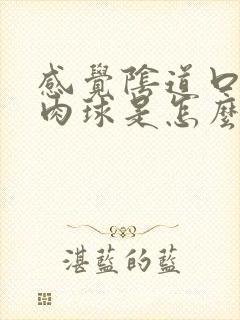 感覺陰道口
肉球是怎麼
湛藍的藍